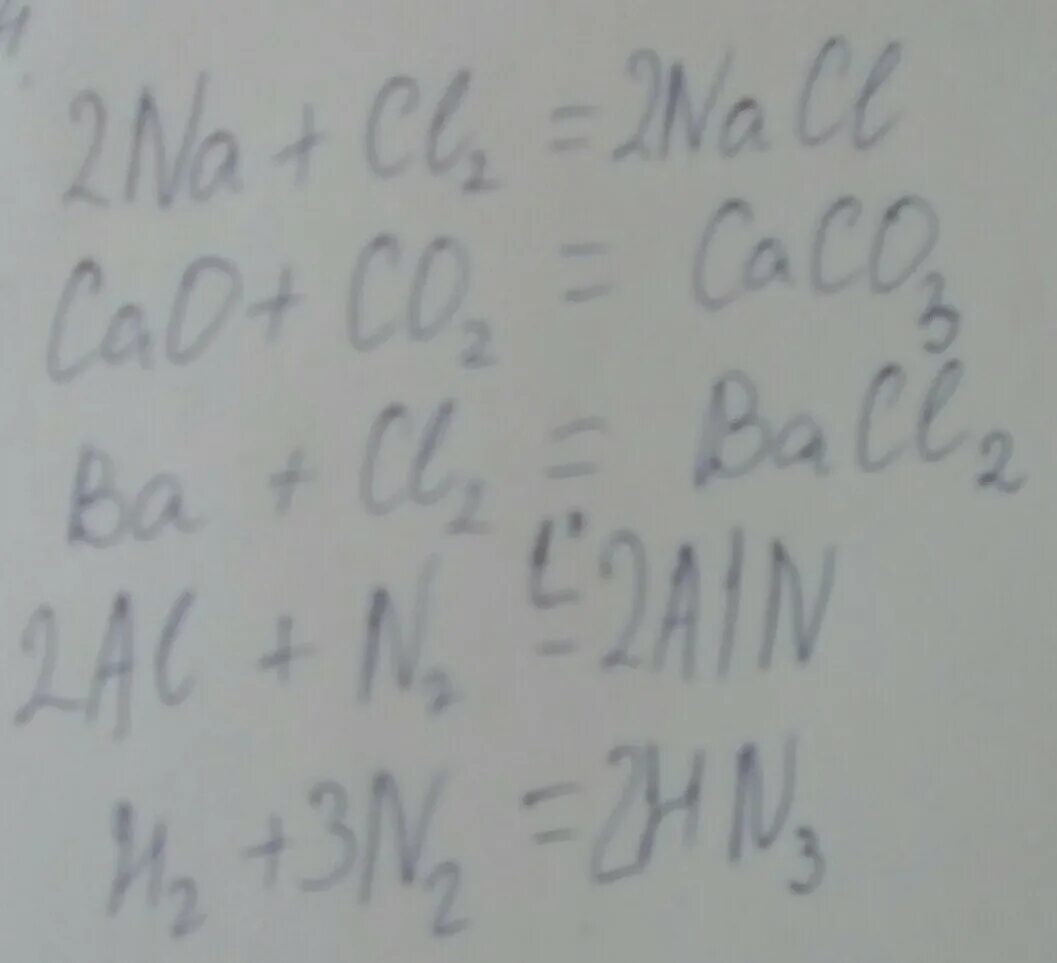 2Na + Cl₂ = 2NaCl
CaO + CO₂ = CaCO₃
Ba + Cl₂ = BaCl₂
2Al + N₂ = 2AlN
H₂ + 3N₂ = 2HN₃